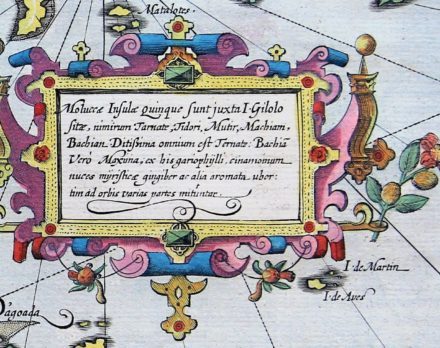 Matalotes.
Moluccæ Insulæ Quinque sunt juxta I. Gilolo
sitæ, nimirum Tarnate, Tidori, Mutir, Machiam,
Bachian. Ditissima omnium est Ternate: Bachiã
Verò Maxima, ex his gariophylli, cinamomum
nuces myristicæ gingiber ac alia aromata uber:
tim ad orbis varias partes mituntur.
I. de Martin
I. de Aves
Dagoada